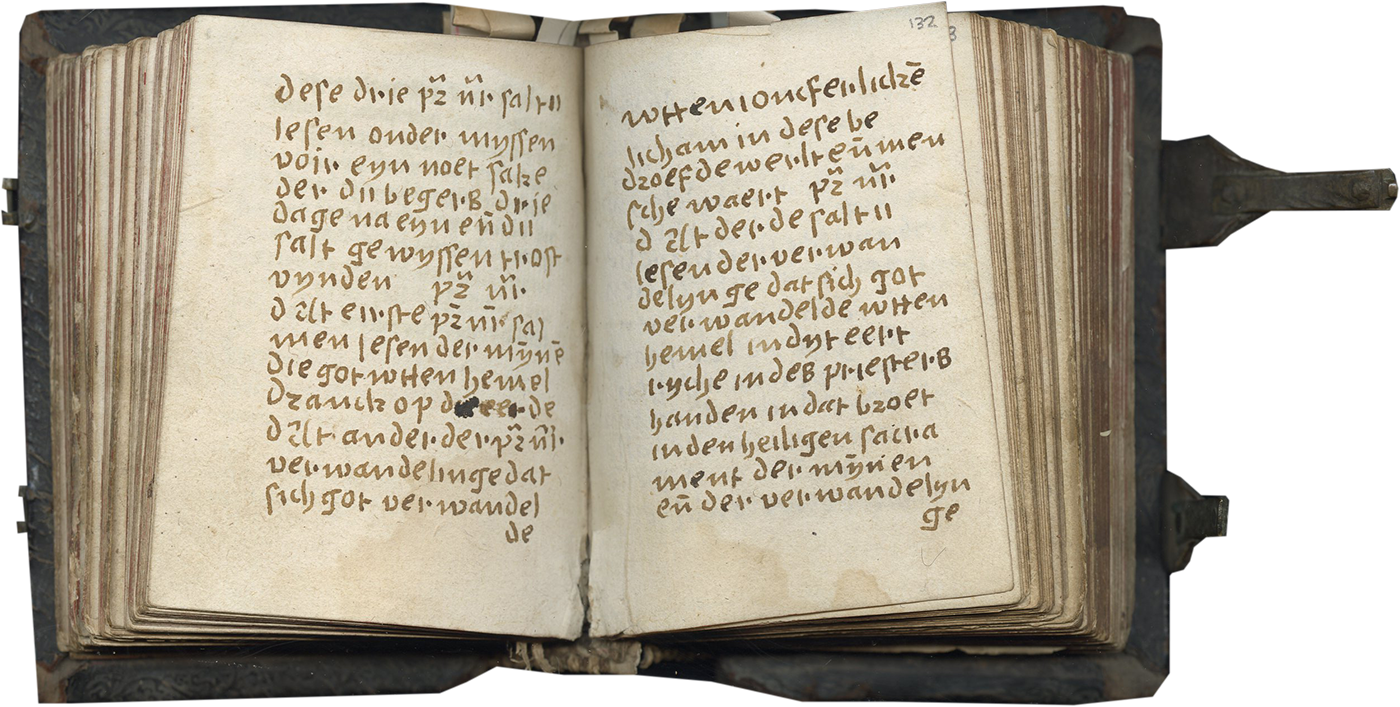 dese drie pr̃ nr̃ salt u
lesen onder myssen
voir eyn noet sake
der du begers drie
dage na eyn en̄ du
salt gewyssen trost
vynden pr̃ nr̃
dat erste pr̃ nr̃ sal
men lesen der mȳnē
die got wtten hemel
dranck op de eerde
dat ander der pr̃ nr̃
verwandelinge dat
sich got verwandel
de
132
wtten ioncferlickē
licham in dese be
droefde werlt en̄ men
sche waert pr̃ nr̃
dat derde salt u
lesen der verwan
delynge dat sich got
verwandelde wtten
hemel in dyt eert
ryche in des priesters
handen in dat broet
in den heiligen sacra
ment der mȳnen
en̄ der verwandelyn
ge